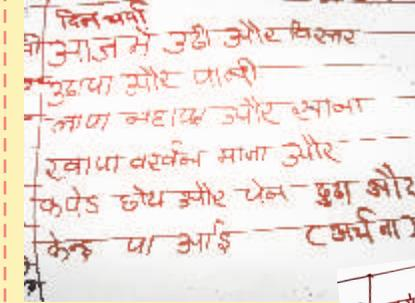 दिन चर्या
आज मे उठी और बिस्तर
उठाया और पानी
लाया नहाय और खाना
खाया बरर्तन माजा और
कपडे धोय और पेन ढुढा और
केन्द्र पा आई (अर्चना)